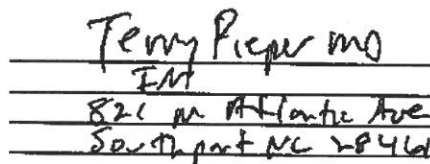 Terry Pieper MD
IM
821 N Atlantic Ave
Southport NC 28461